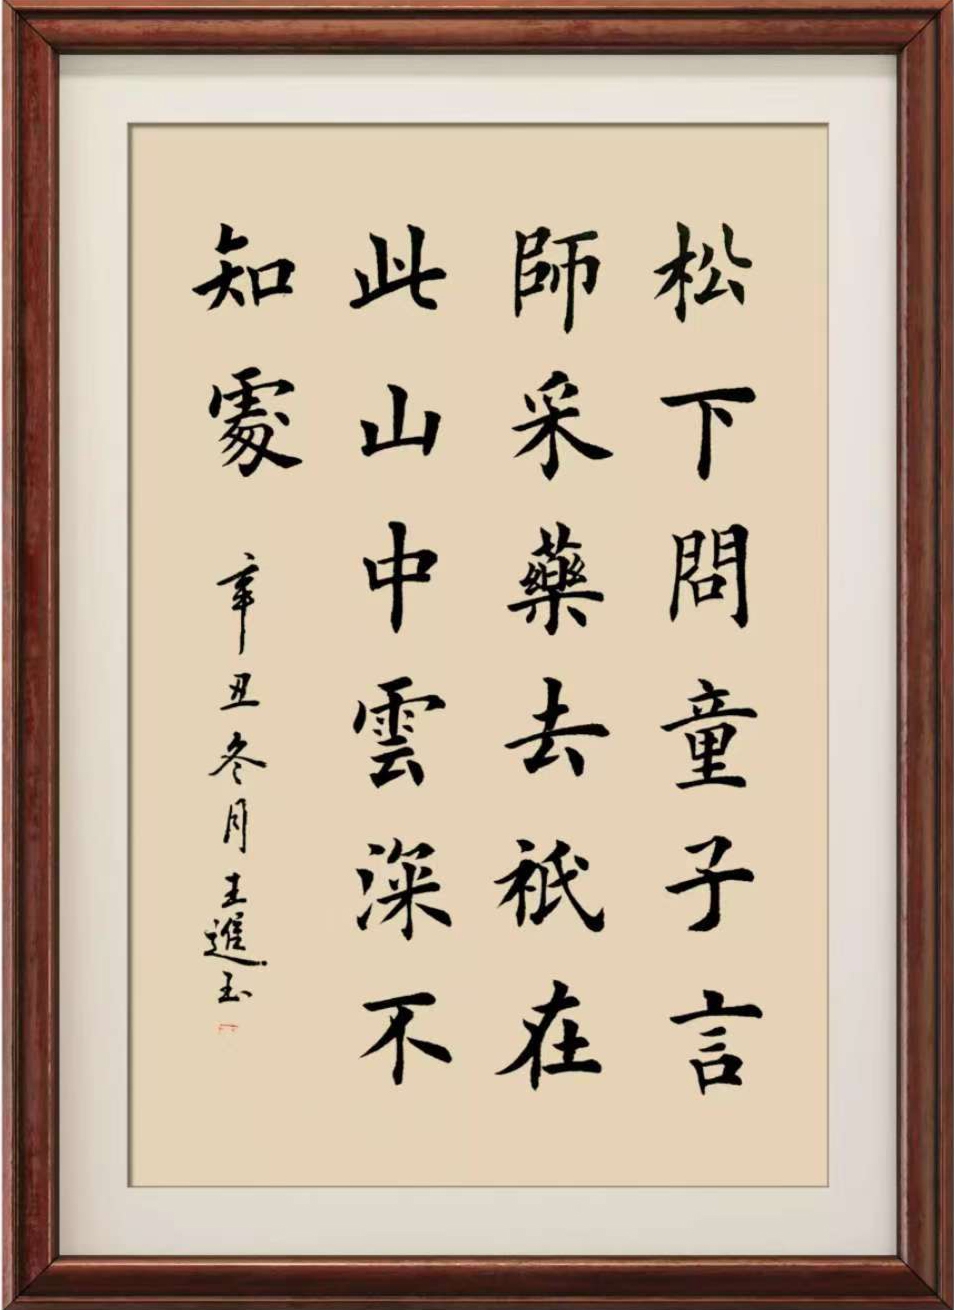 松下問童子言
師采藥去祇在
此山中雲深不
知處 辛丑冬月王進玉